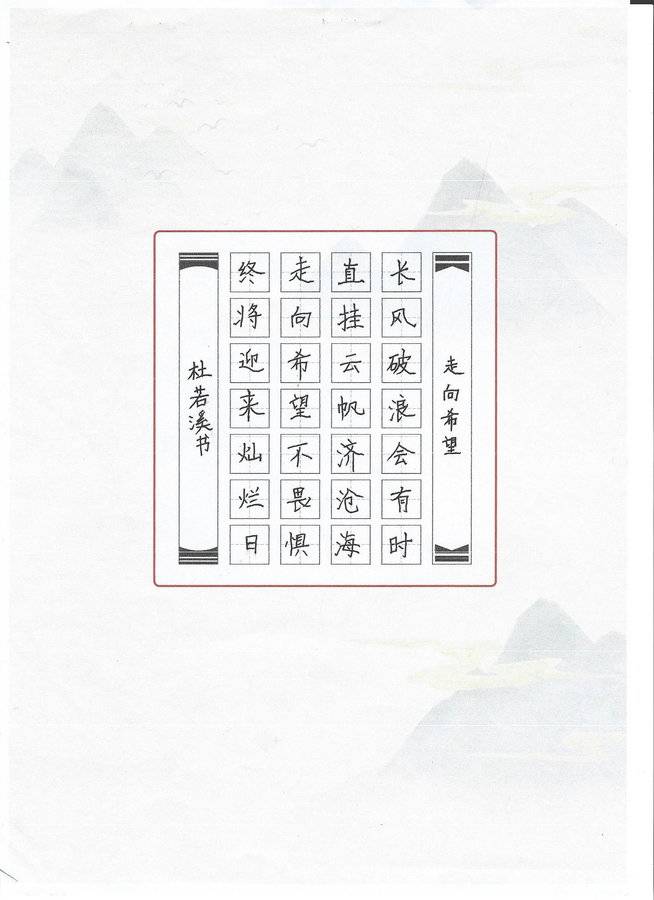 走向希望
长风破浪会有时
直挂云帆济沧海
走向希望不畏惧
终将迎来灿烂日
杜若溪书